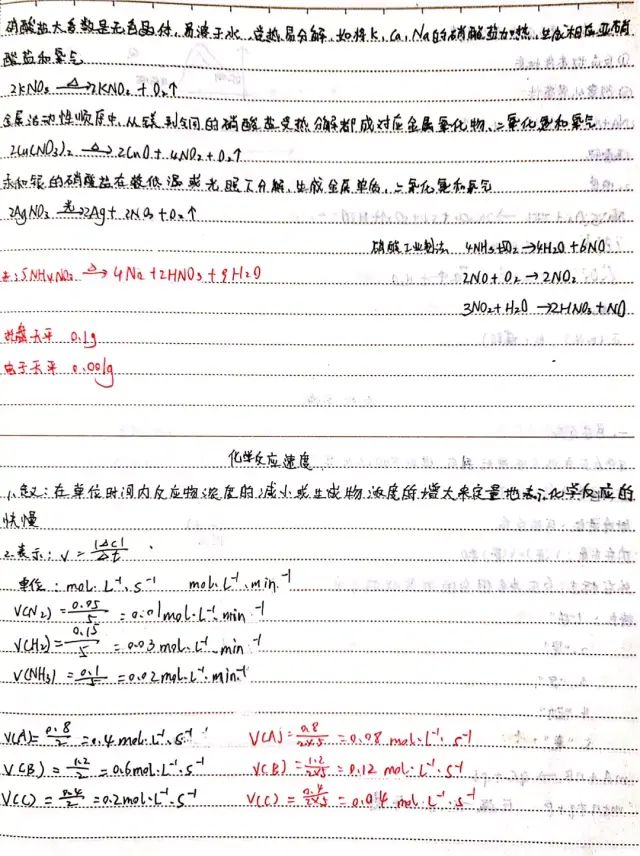 硝酸盐大多数是无色晶体,易溶于水,受热易分解,如将K,Ca,Na的硝酸盐加热,生成相应亚硝
酸盐和氧气
2KNO₃ —△→ 2KNO₂ + O₂↑
金属活动性顺序中,从镁到铜的硝酸盐受热分解都成对应金属氧化物、二氧化氮和氧气
2Cu(NO₃)₂ —△→ 2CuO + 4NO₂ + O₂↑
汞和银的硝酸盐在较低温或光照下分解,生成金属单质,二氧化氮和氧气
2AgNO₃ —光→ 2Ag + 2NO₂ + O₂↑
硝酸工业制法 4NH₃+5O₂→4H₂O+6NO
5NH₄NO₃ —△→ 4N₂+2HNO₃+9H₂O
2NO+O₂→2NO₂
3NO₂+H₂O→2HNO₃+NO
托盘天平 0.1g
电子天平 0.001g
化学反应速度
1.定义:在单位时间内反应物浓度的减小或生成物浓度的增大来定量地表示化学反应的
快慢
2.表示:v=|Δc|/Δt
单位:mol·L⁻¹·s⁻¹ mol·L⁻¹·min⁻¹
V(N₂)=0.05/5=0.01mol·L⁻¹·min⁻¹
V(H₂)=0.15/5=0.03mol·L⁻¹·min⁻¹
V(NH₃)=0.1/5=0.02mol·L⁻¹·min⁻¹
V(A)=0.8/2=0.4mol·L⁻¹·s⁻¹ V(A)=0.8/2×5=0.08mol·L⁻¹·s⁻¹
V(B)=1.2/2=0.6mol·L⁻¹·s⁻¹ V(B)=1.2/2×5=0.12mol·L⁻¹·s⁻¹
V(C)=0.4/2=0.2mol·L⁻¹·s⁻¹ V(C)=0.4/2×5=0.04mol·L⁻¹·s⁻¹